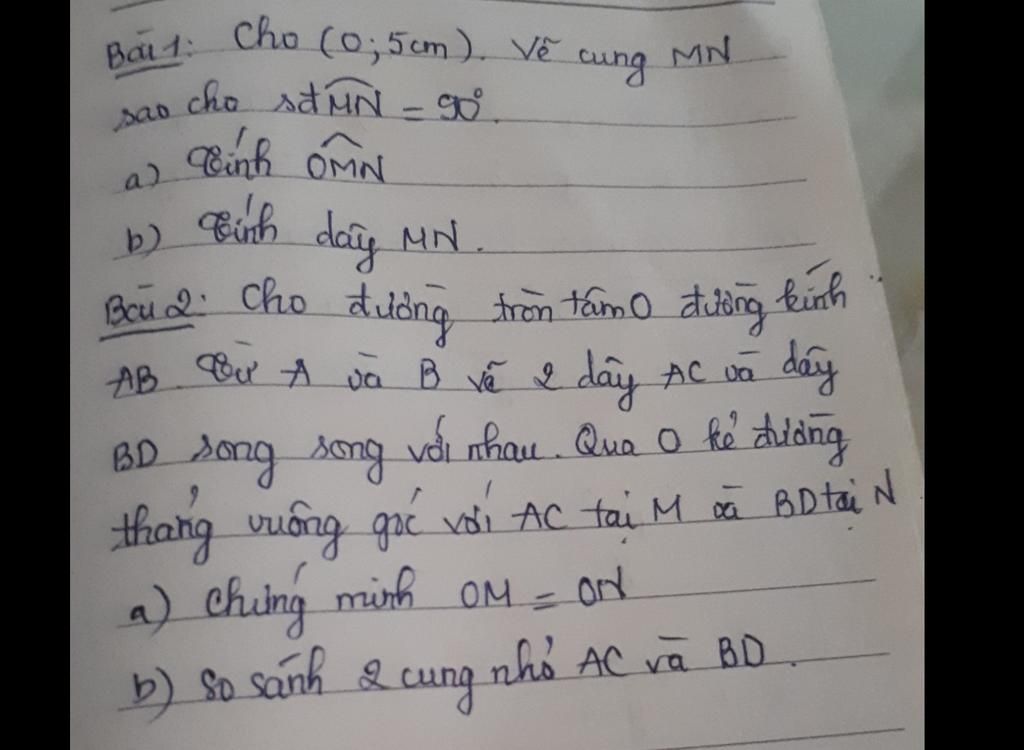 Bài 1: Cho (O; 5cm). Vẽ cung MN
sao cho sđ MN = 90°.
a) Tính OMN
b) Tính dây MN.
Bài 2: Cho đường tròn tâm O đường kính
AB. Từ A và B vẽ 2 dây AC và dây
BD song song với nhau. Qua O kẻ đường
thẳng vuông góc với AC tại M và BD tại N
a) Chứng minh OM = ON
b) So sánh 2 cung nhỏ AC và BD.